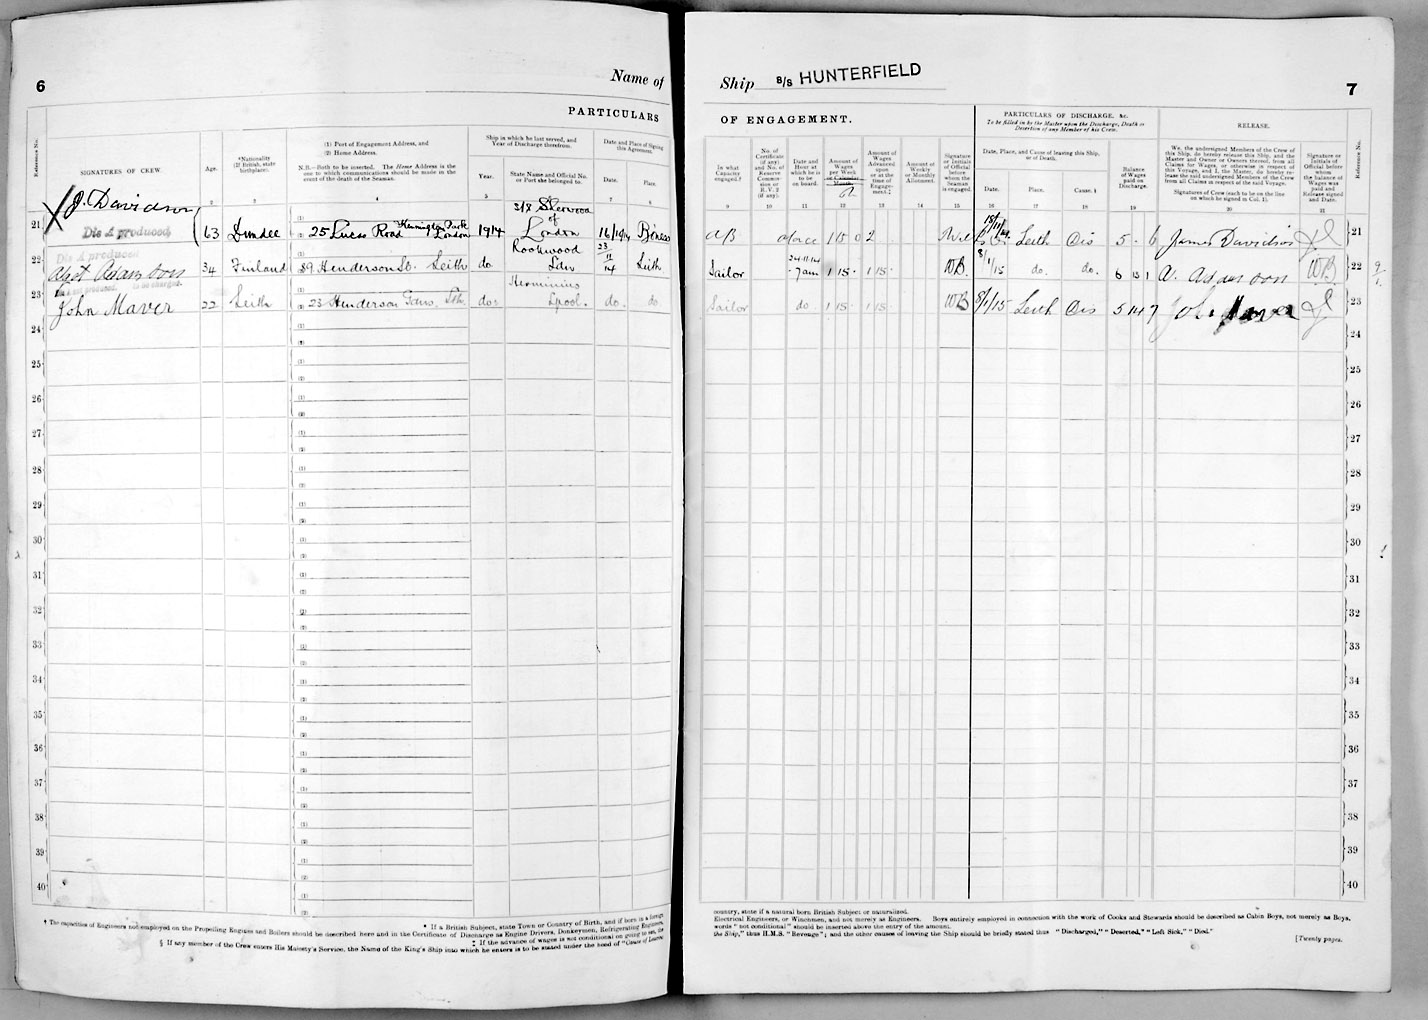 6
Name of
PARTICULARS
Reference No.
SIGNATURES OF CREW.
Age.
*Nationality
(If British, state
birthplace).
(1) Port of Engagement Address, and
(2) Home Address.
N.B.—Both to be inserted. The Home Address is the
one to which communications should be made in the
event of the death of the Seaman.
Ship in which he last served, and
Year of Discharge therefrom.
Year.
State Name and Official No.
or Port she belonged to.
Date and Place of Signing
this Agreement.
Date.
Place.
2 3 4 5 6 7 8
21 J. Davidson 63 Dundee 25 Road Kennington Park London 1914 S/S Sherwood of London 16/11/14
Dis A produced
22 Dis A produced
34 Finland 89 Henderson St. Leith do Rookwood Ldn 23/11/14 Leith
23 Dis A not produced. to be charged.
John Maver 22 Leith 23 Henderson Gdns, Lth. do. Lpool. do. do
24
25
26
27
28
29
30
31
32
33
34
35
36
37
38
39
40
* If a British Subject, state Town or Country of Birth, and if born in a foreign
† The capacities of Engineers not employed on the Propelling Engines and Boilers should be described here and in the Certificate of Discharge as Engine Drivers, Donkeymen, Refrigerating Engineers,
‡ If the advance of wages is not conditional on going to sea, the
§ If any member of the Crew enters His Majesty's Service, the Name of the King's Ship into which he enters is to be stated under the head of "Cause of Leaving
Ship B/S HUNTERFIELD
7
OF ENGAGEMENT.
PARTICULARS OF DISCHARGE, &c.
To be filled in by the Master upon the Discharge, Death or
Desertion of any Member of his Crew.
RELEASE.
In what
Capacity
engaged.†
No. of
Certificate
(if any)
and No. of
Reserve
Commis-
sion or
R.V. 2
(if any).
Date and
Hour at
which he is
to be
on board.
Amount of
Wages
per Week
or Calendar
Month.
Amount of
Wages
Advanced
upon
or at the
time of
Engage-
ment.‡
Amount of
Weekly
or Monthly
Allotment.
Signature
or Initials
of Official
before
whom the
Seaman
is engaged.
Date, Place, and Cause of leaving this Ship,
or of Death.
Date.
Place.
Cause.§
Balance
of Wages
paid on
Discharge.
We, the undersigned Members of the Crew of
this Ship, do hereby release this Ship, and the
Master and Owner or Owners thereof, from all
Claims for Wages, or otherwise in respect of
this Voyage, and I, the Master, do hereby re-
lease the said undersigned Members of the Crew
from all Claims in respect of the said Voyage.
Signatures of Crew (each to be on the line
on which he signed in Col. 1).
Signature or
Initials of
Official before
whom
the balance of
Wages was
paid and
Release signed
and Date.
Reference No.
9 10 11 12 13 14 15 16 17 18 19 20 21
AB at once 1 15 0 2 Leith Dis 5 - 6 James Davidson 21
Sailor 24.11.14 7am 1 15 - 1 15 - WB 8/1/15 do. do. 6 13 1 WB 22
Sailor do 1 15 - 1 15 - WB 8/1/15 Leith Dis 5 14 7 John Maver 23
24
25
26
27
28
29
30
31
32
33
34
35
36
37
38
39
40
country, state if a natural born British Subject or naturalized.
Electrical Engineers, or Winchmen, and not merely as Engineers. Boys entirely employed in connection with the work of Cooks and Stewards should be described as Cabin Boys, not merely as Boys.
words "not conditional" should be inserted above the entry of the amount.
the Ship," thus H.M.S. "Revenge"; and the other causes of leaving the Ship should be briefly stated thus "Discharged," "Deserted," "Left Sick," "Died."
[Twenty pages.